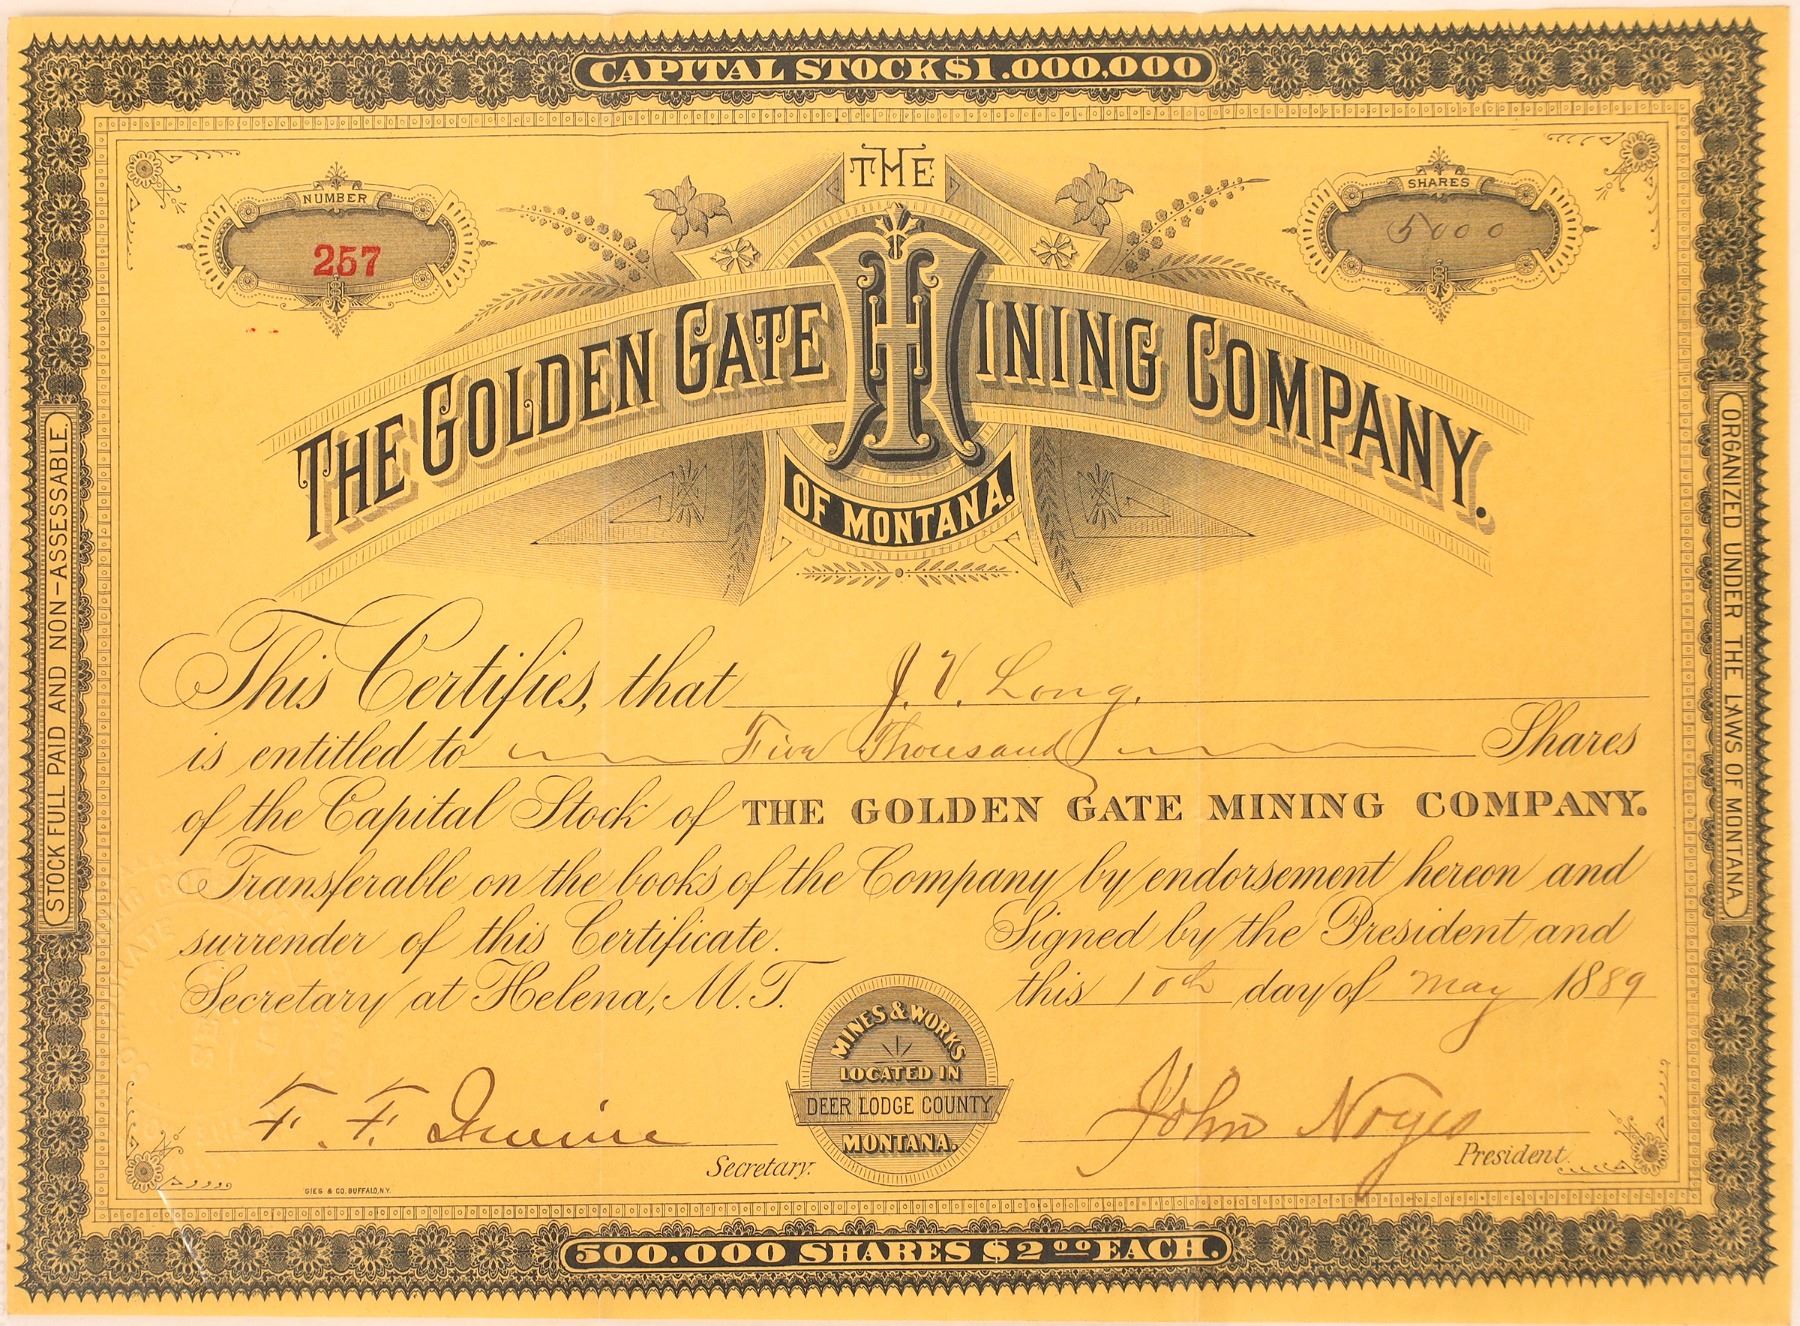 CAPITAL STOCK $1.000,000
NUMBER
257
SHARES
5000
THE
THE GOLDEN GATE MINING COMPANY.
OF MONTANA.
STOCK FULL PAID AND NON-ASSESSABLE.
ORGANIZED UNDER THE LAWS OF MONTANA
This Certifies, that J. V. Long.
is entitled to Five Thousand Shares
of the Capital Stock of THE GOLDEN GATE MINING COMPANY.
Transferable on the books of the Company by endorsement hereon and
surrender of this Certificate. Signed by the President and
Secretary at Helena, M.T. this 10th day of May 1889
MINES & WORKS
LOCATED IN
DEER LODGE COUNTY
MONTANA.
F. F. Irvine
Secretary.
John Noyes
President.
GIES & CO. BUFFALO, N.Y.
500.000 SHARES $2 00 EACH.